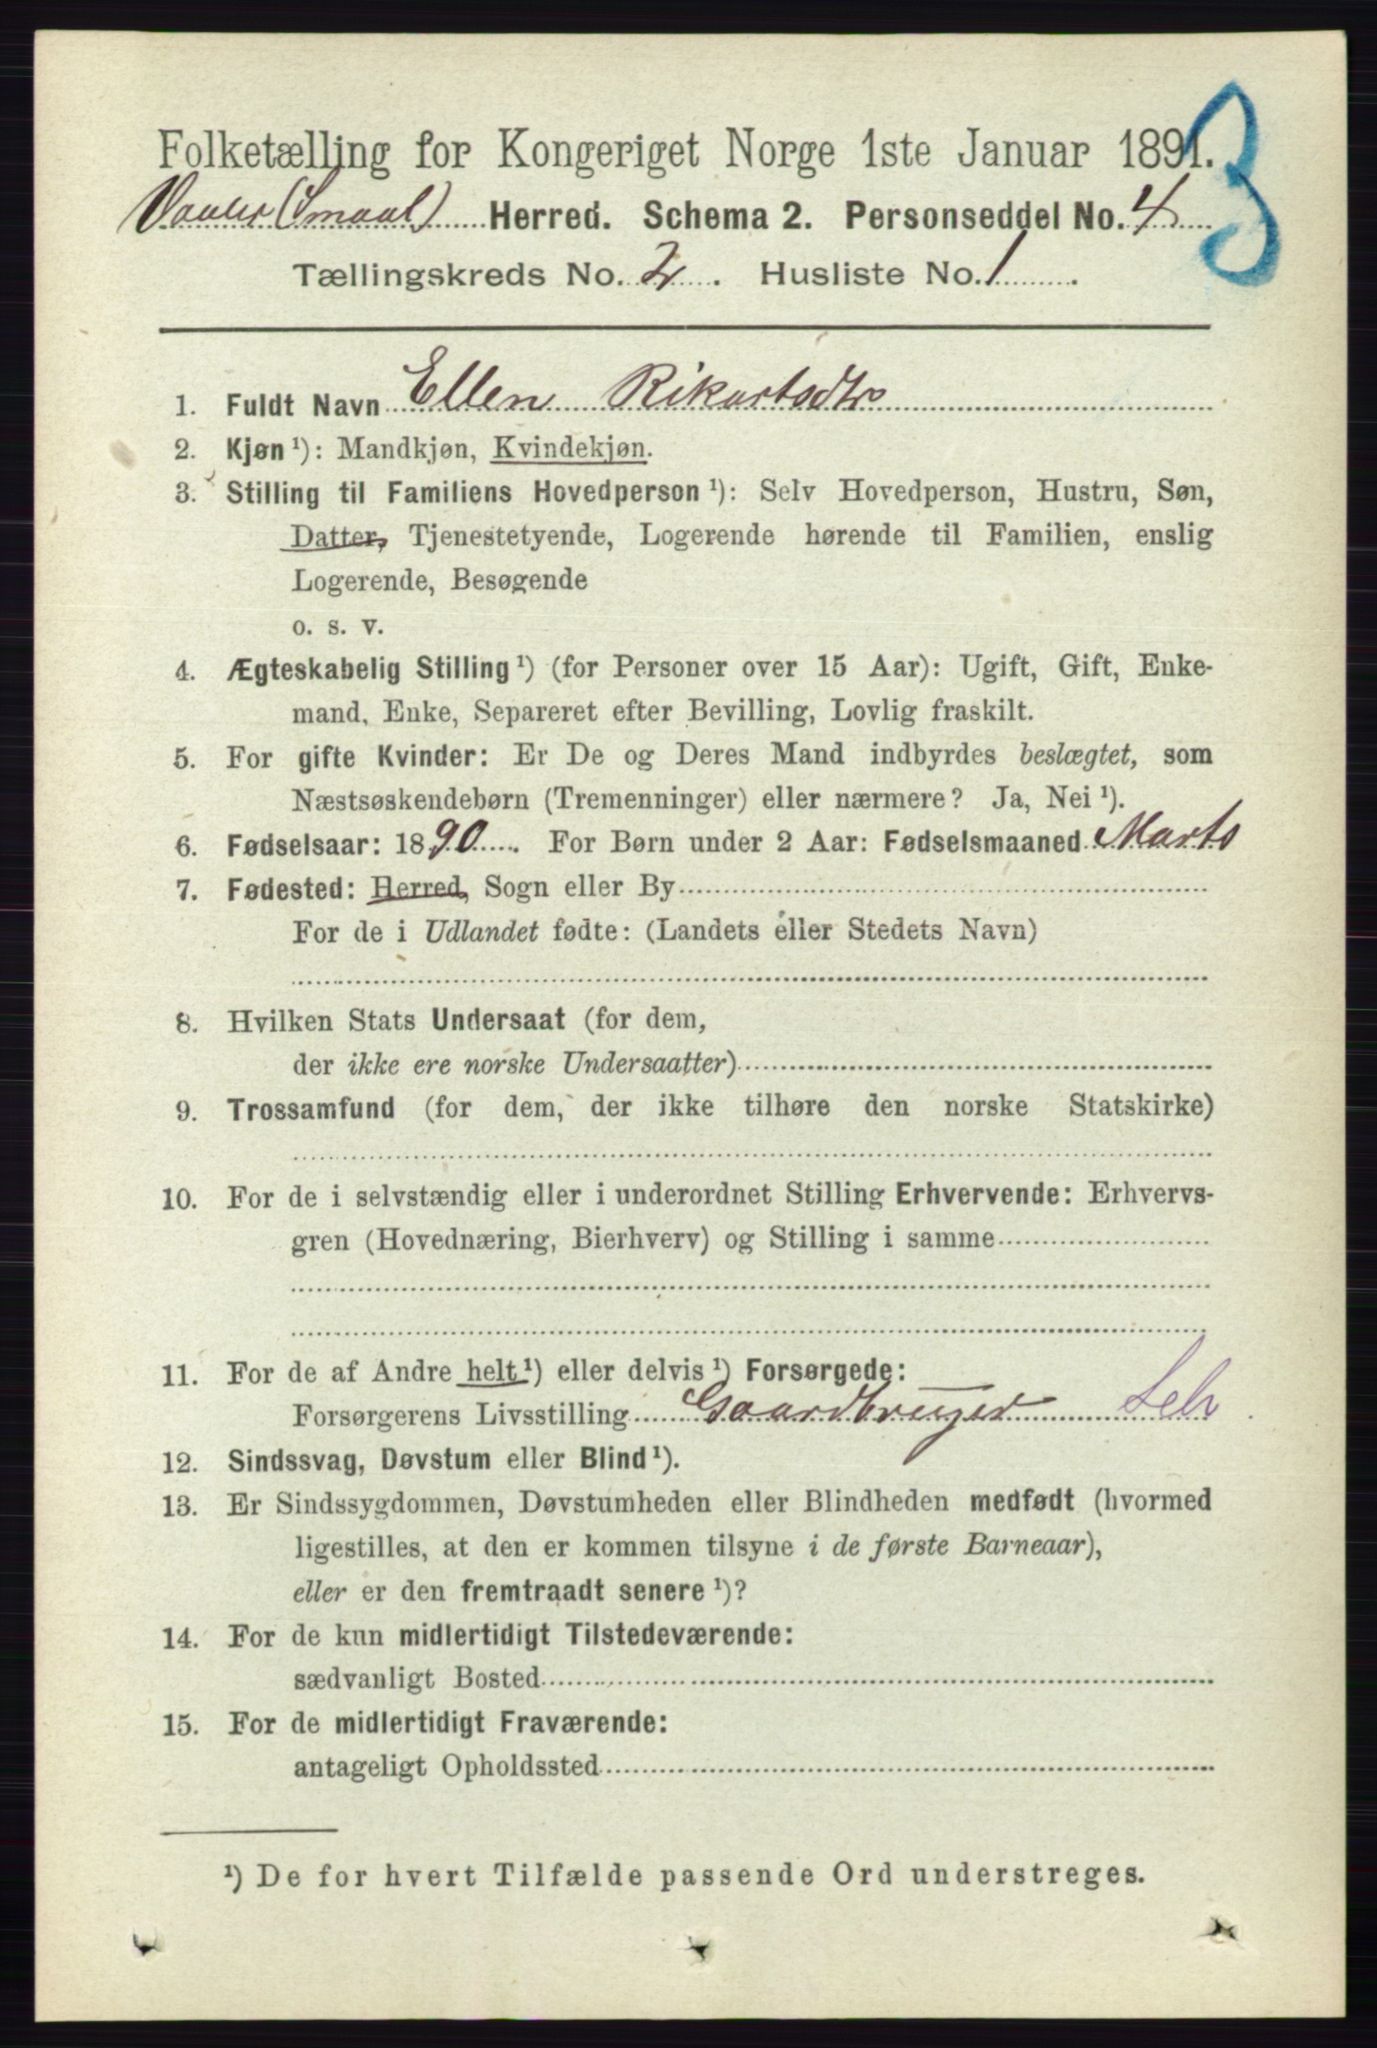 Folketælling for Kongeriget Norge 1ste Januar 1891.
3
Vaaler (Smaal) Herred. Schema 2. Personseddel No. 4
Tællingskreds No. 2. Husliste No. 1.
1. Fuldt Navn Ellen Rikartsdtr
2. Kjøn ¹): Mandkjøn, Kvindekjøn.
3. Stilling til Familiens Hovedperson ¹): Selv Hovedperson, Hustru, Søn,
Datter, Tjenestetyende, Logerende hørende til Familien, enslig
Logerende, Besøgende
o. s. v.
4. Ægteskabelig Stilling ¹) (for Personer over 15 Aar): Ugift, Gift, Enke-
mand, Enke, Separeret efter Bevilling, Lovlig fraskilt.
5. For gifte Kvinder: Er De og Deres Mand indbyrdes beslægtet, som
Næstsøskendebørn (Tremenninger) eller nærmere? Ja, Nei ¹).
6. Fødselsaar: 1890. For Børn under 2 Aar: Fødselsmaaned Marts
7. Fødested: Herred, Sogn eller By
For de i Udlandet fødte: (Landets eller Stedets Navn)
8. Hvilken Stats Undersaat (for dem,
der ikke ere norske Undersaatter)
9. Trossamfund (for dem, der ikke tilhøre den norske Statskirke)
10. For de i selvstændig eller i underordnet Stilling Erhvervende: Erhvervs-
gren (Hovednæring, Bierhverv) og Stilling i samme
11. For de af Andre helt ¹) eller delvis ¹) Forsørgede:
Forsørgerens Livsstilling Gaardbruger Selv
12. Sindssvag, Døvstum eller Blind ¹).
13. Er Sindssygdommen, Døvstumheden eller Blindheden medfødt (hvormed
ligestilles, at den er kommen tilsyne i de første Barneaar),
eller er den fremtraadt senere ¹)?
14. For de kun midlertidigt Tilstedeværende:
sædvanligt Bosted
15. For de midlertidigt Fraværende:
antageligt Opholdssted
¹) De for hvert Tilfælde passende Ord understreges.